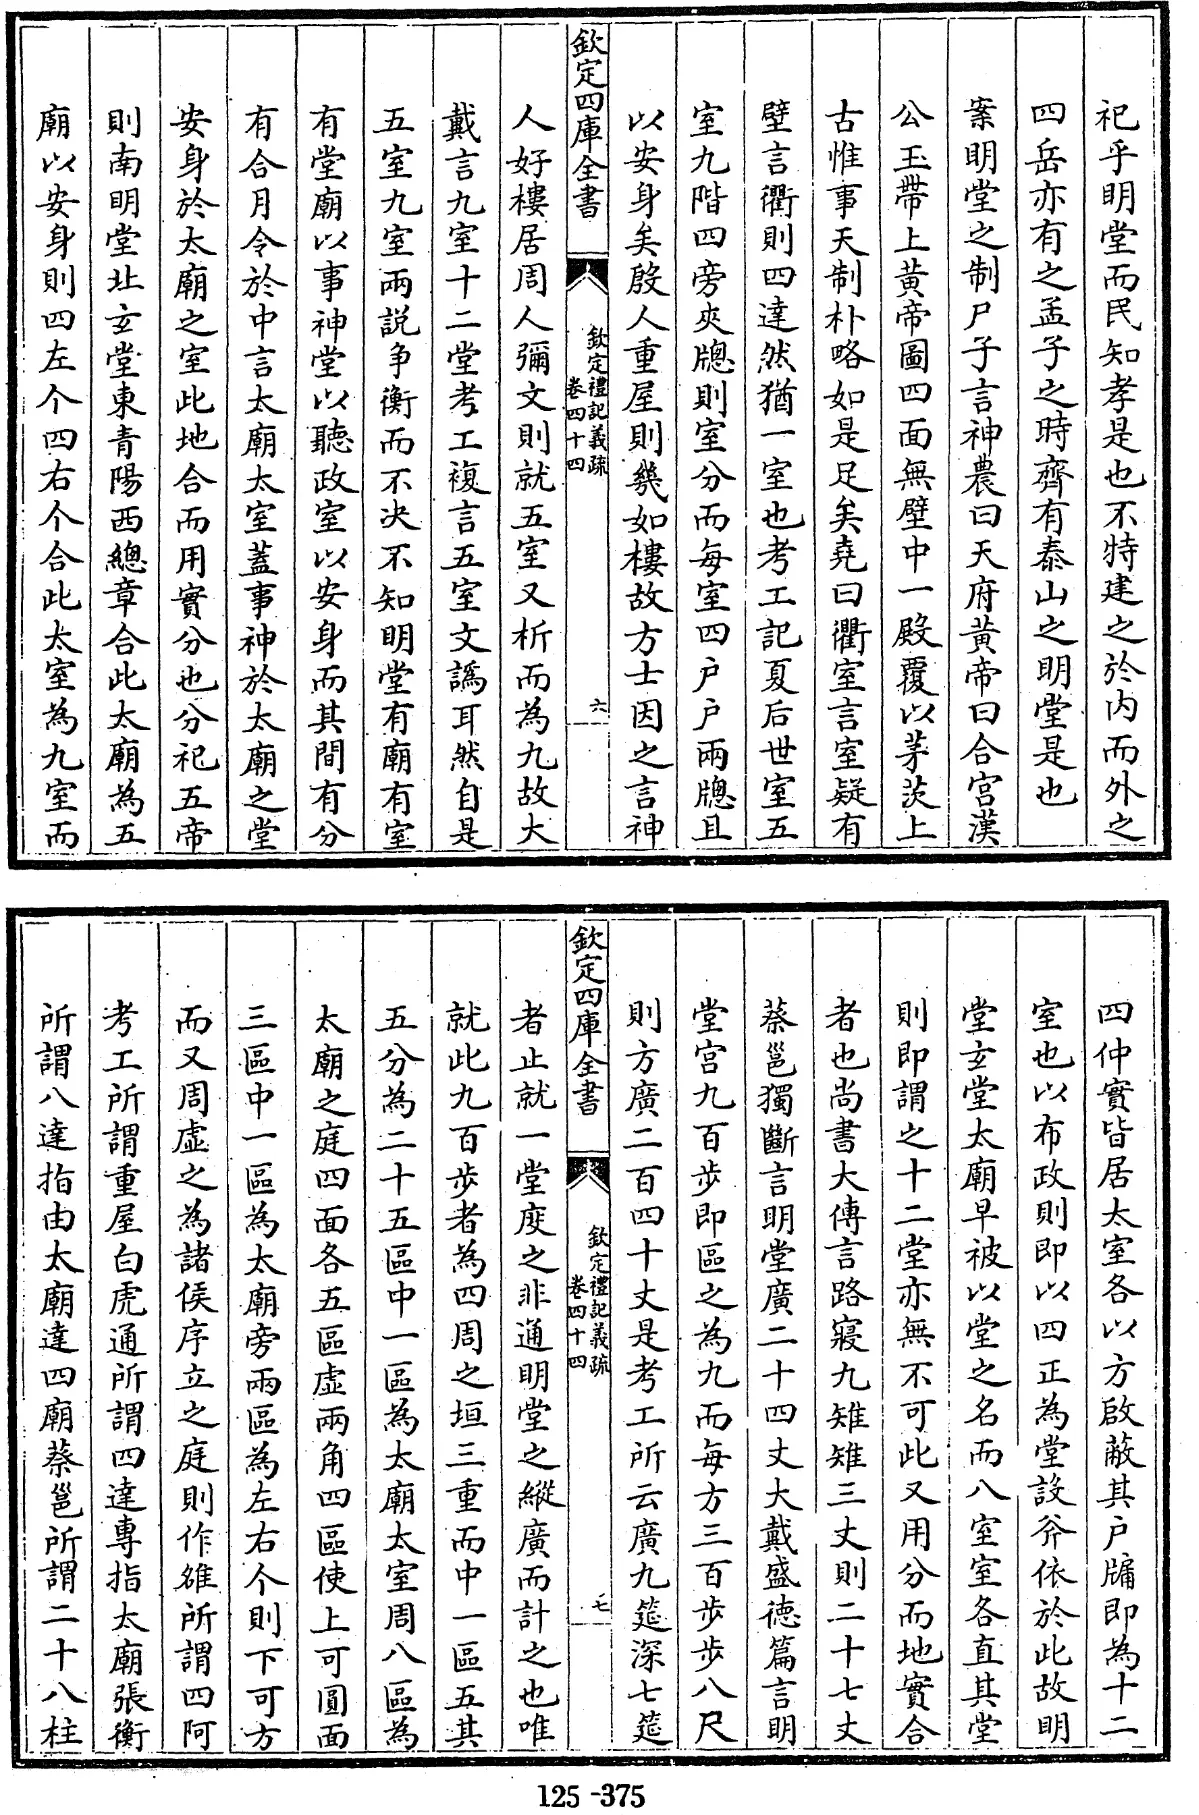 祀乎明堂而民知孝是也不特建之於内而外之
四岳亦有之孟子之時齊有泰山之明堂是也
案明堂之制尸子言神農曰天府黄帝曰合宫漢
公玉帶上黄帝圖四面無壁中一殿覆以茅茨上
古惟事天制朴略如是足矣堯曰衢室言室疑有
壁言衢則四達然猶一室也考工記夏后世室五
室九階四旁夾牕則室分而每室四户户兩牕且
以安身矣殷人重屋則㡬如樓故方士因之言神
欽定四庫全書
欽定禮記義疏
卷四十四
六
人好樓居周人彌文則就五室又析而為九故大
戴言九室十二堂考工複言五室文譌耳然自是
五室九室兩説争衡而不决不知明堂有廟有室
有堂廟以事神堂以聽政室以安身而其間有分
有合月令於中言太廟太室蓋事神於太廟之堂
安身於太廟之室此地合而用實分也分祀五帝
則南明堂北玄堂東青陽西總章合此太廟為五
廟以安身則四左个四右个合此太室為九室而
四仲實皆居太室各以方啟蔽其户牖即為十二
室也以布政則即以四正為堂設斧依於此故明
堂玄堂太廟早被以堂之名而八室室各直其堂
則即謂之十二堂亦無不可此又用分而地實合
者也尚書大傳言路寢九雉雉三丈則二十七丈
蔡邕獨斷言明堂廣二十四丈大戴盛德篇言明
堂宫九百步即區之為九而每方三百步步八尺
則方廣二百四十丈是考工所云廣九筵深七筵
欽定四庫全書
欽定禮記義疏
卷四十四
七
者止就一堂度之非通明堂之縱廣而計之也唯
就此九百步者為四周之垣三重而中一區五其
五分為二十五區中一區為太廟太室周八區為
太廟之庭四面各五區虛兩角四區使上可圓面
三區中一區為太廟旁兩區為左右个則下可方
而又周虛之為諸侯序立之庭則作雒所謂四阿
考工所謂重屋白虎通所謂四達專指太廟張衡
所謂八達指由太廟達四廟蔡邕所謂二十八柱
125-375